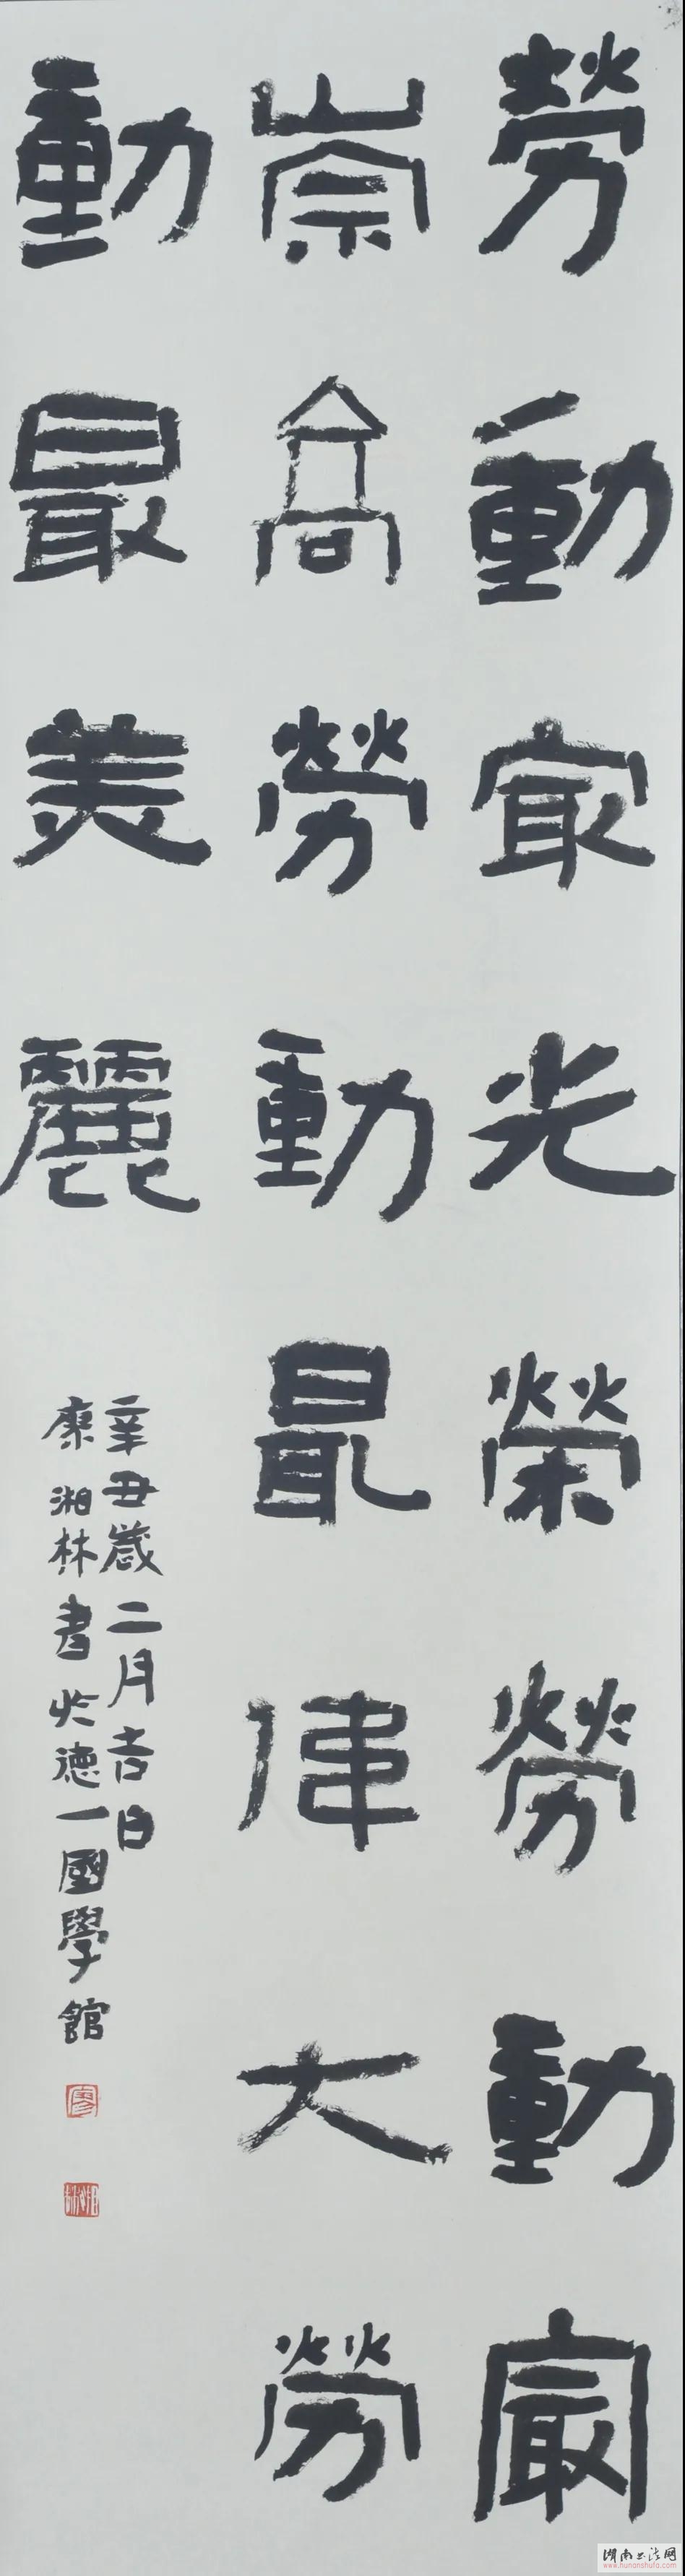 勞動冣光榮勞動冣
崇高勞動最偉大勞
動最美麗
辛丑歲二月吉日
廖湘林書於德一國學館
廖
湘林
湖南书法网
www.hunanshufa.com